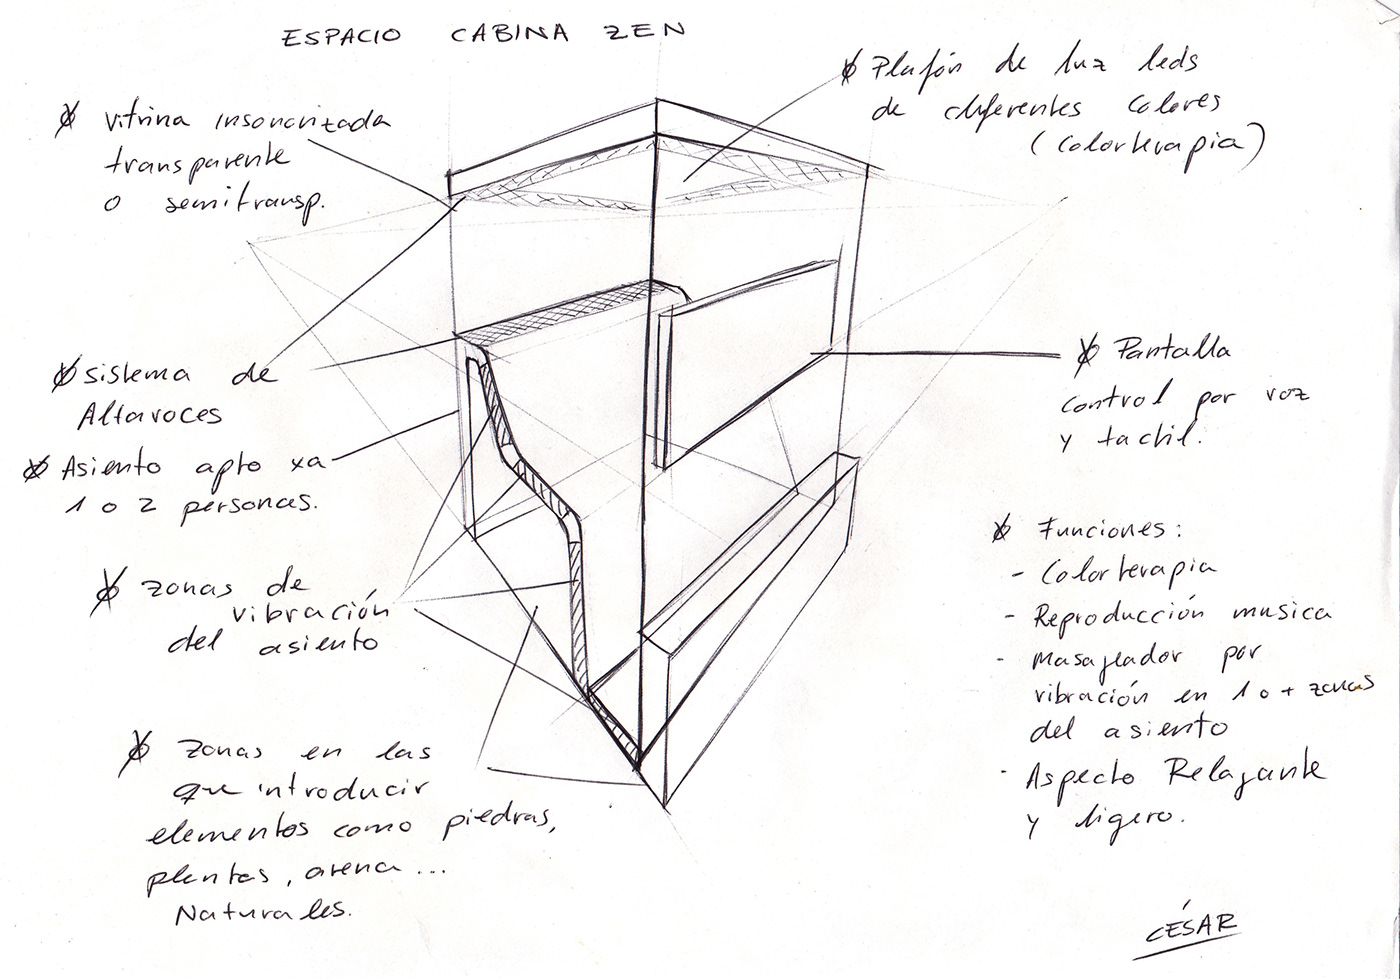 ESPACIO CABINA ZEN
vitrina insonorizada
transparente
o semitransp.
Plafón de luz leds
de diferentes colores
(colorterapia)
sistema de
Altavoces
Asiento apto xa
1 o 2 personas.
zonas de
vibración
del asiento
zonas en las
que introducir
elementos como piedras,
plantas, arena...
Naturales.
Pantalla
control por voz
y tactil.
Funciones:
- Colorterapia
- Reproducción musica
- Masajeador por
vibración en 1 o + zonas
del asiento
- Aspecto Relajante
y ligero.
CÉSAR